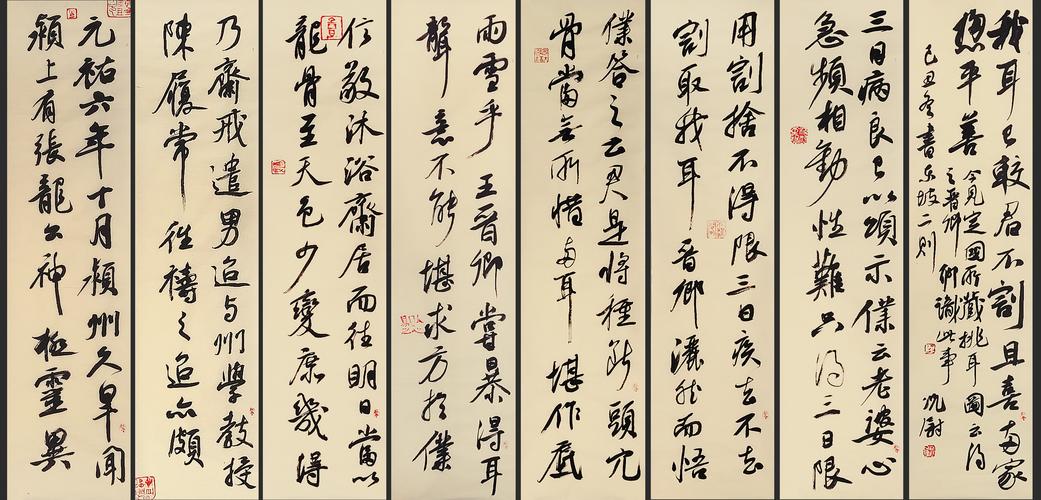 元祐六年十月潁州久旱聞
潁上有張龍公神極靈異
乃齋戒遣男迨与州學教授
陳履常往禱之迨亦頗
信敬沐浴齋居而往明日當以
龍骨至天色少變庶幾得
雨雪乎 王晉卿嘗暴得耳
聾意不能堪求方於僕
僕答之云君是將種斷頭穴
骨當無所惜兩耳堪作底
用割捨不得限三日疾去不去
割取我耳晉卿灑然而悟
三日病良已以頌示僕云老婆心
急頻相勸性難只得三日限
我耳已較君不割且喜兩家
總平善
今見定國所藏挑耳圖云得
之晉卿聊識此事
己丑冬書東坡二則